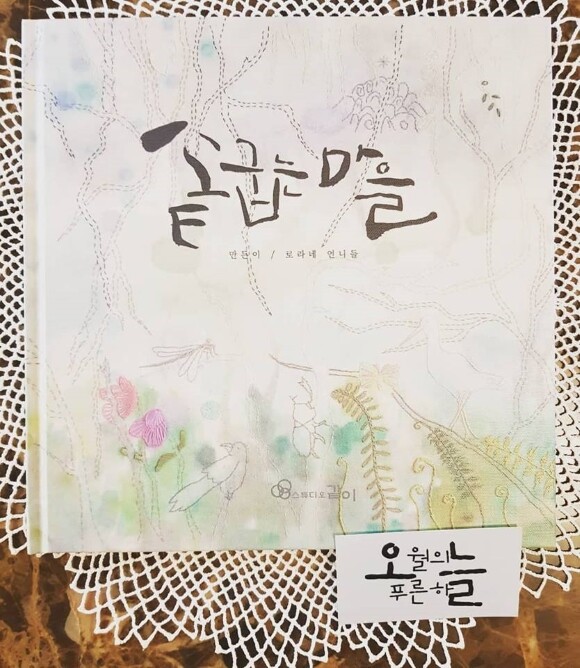 숯굽는 마을
만든이 / 로라네 언니들
스튜디오같이
오월의
푸른하늘